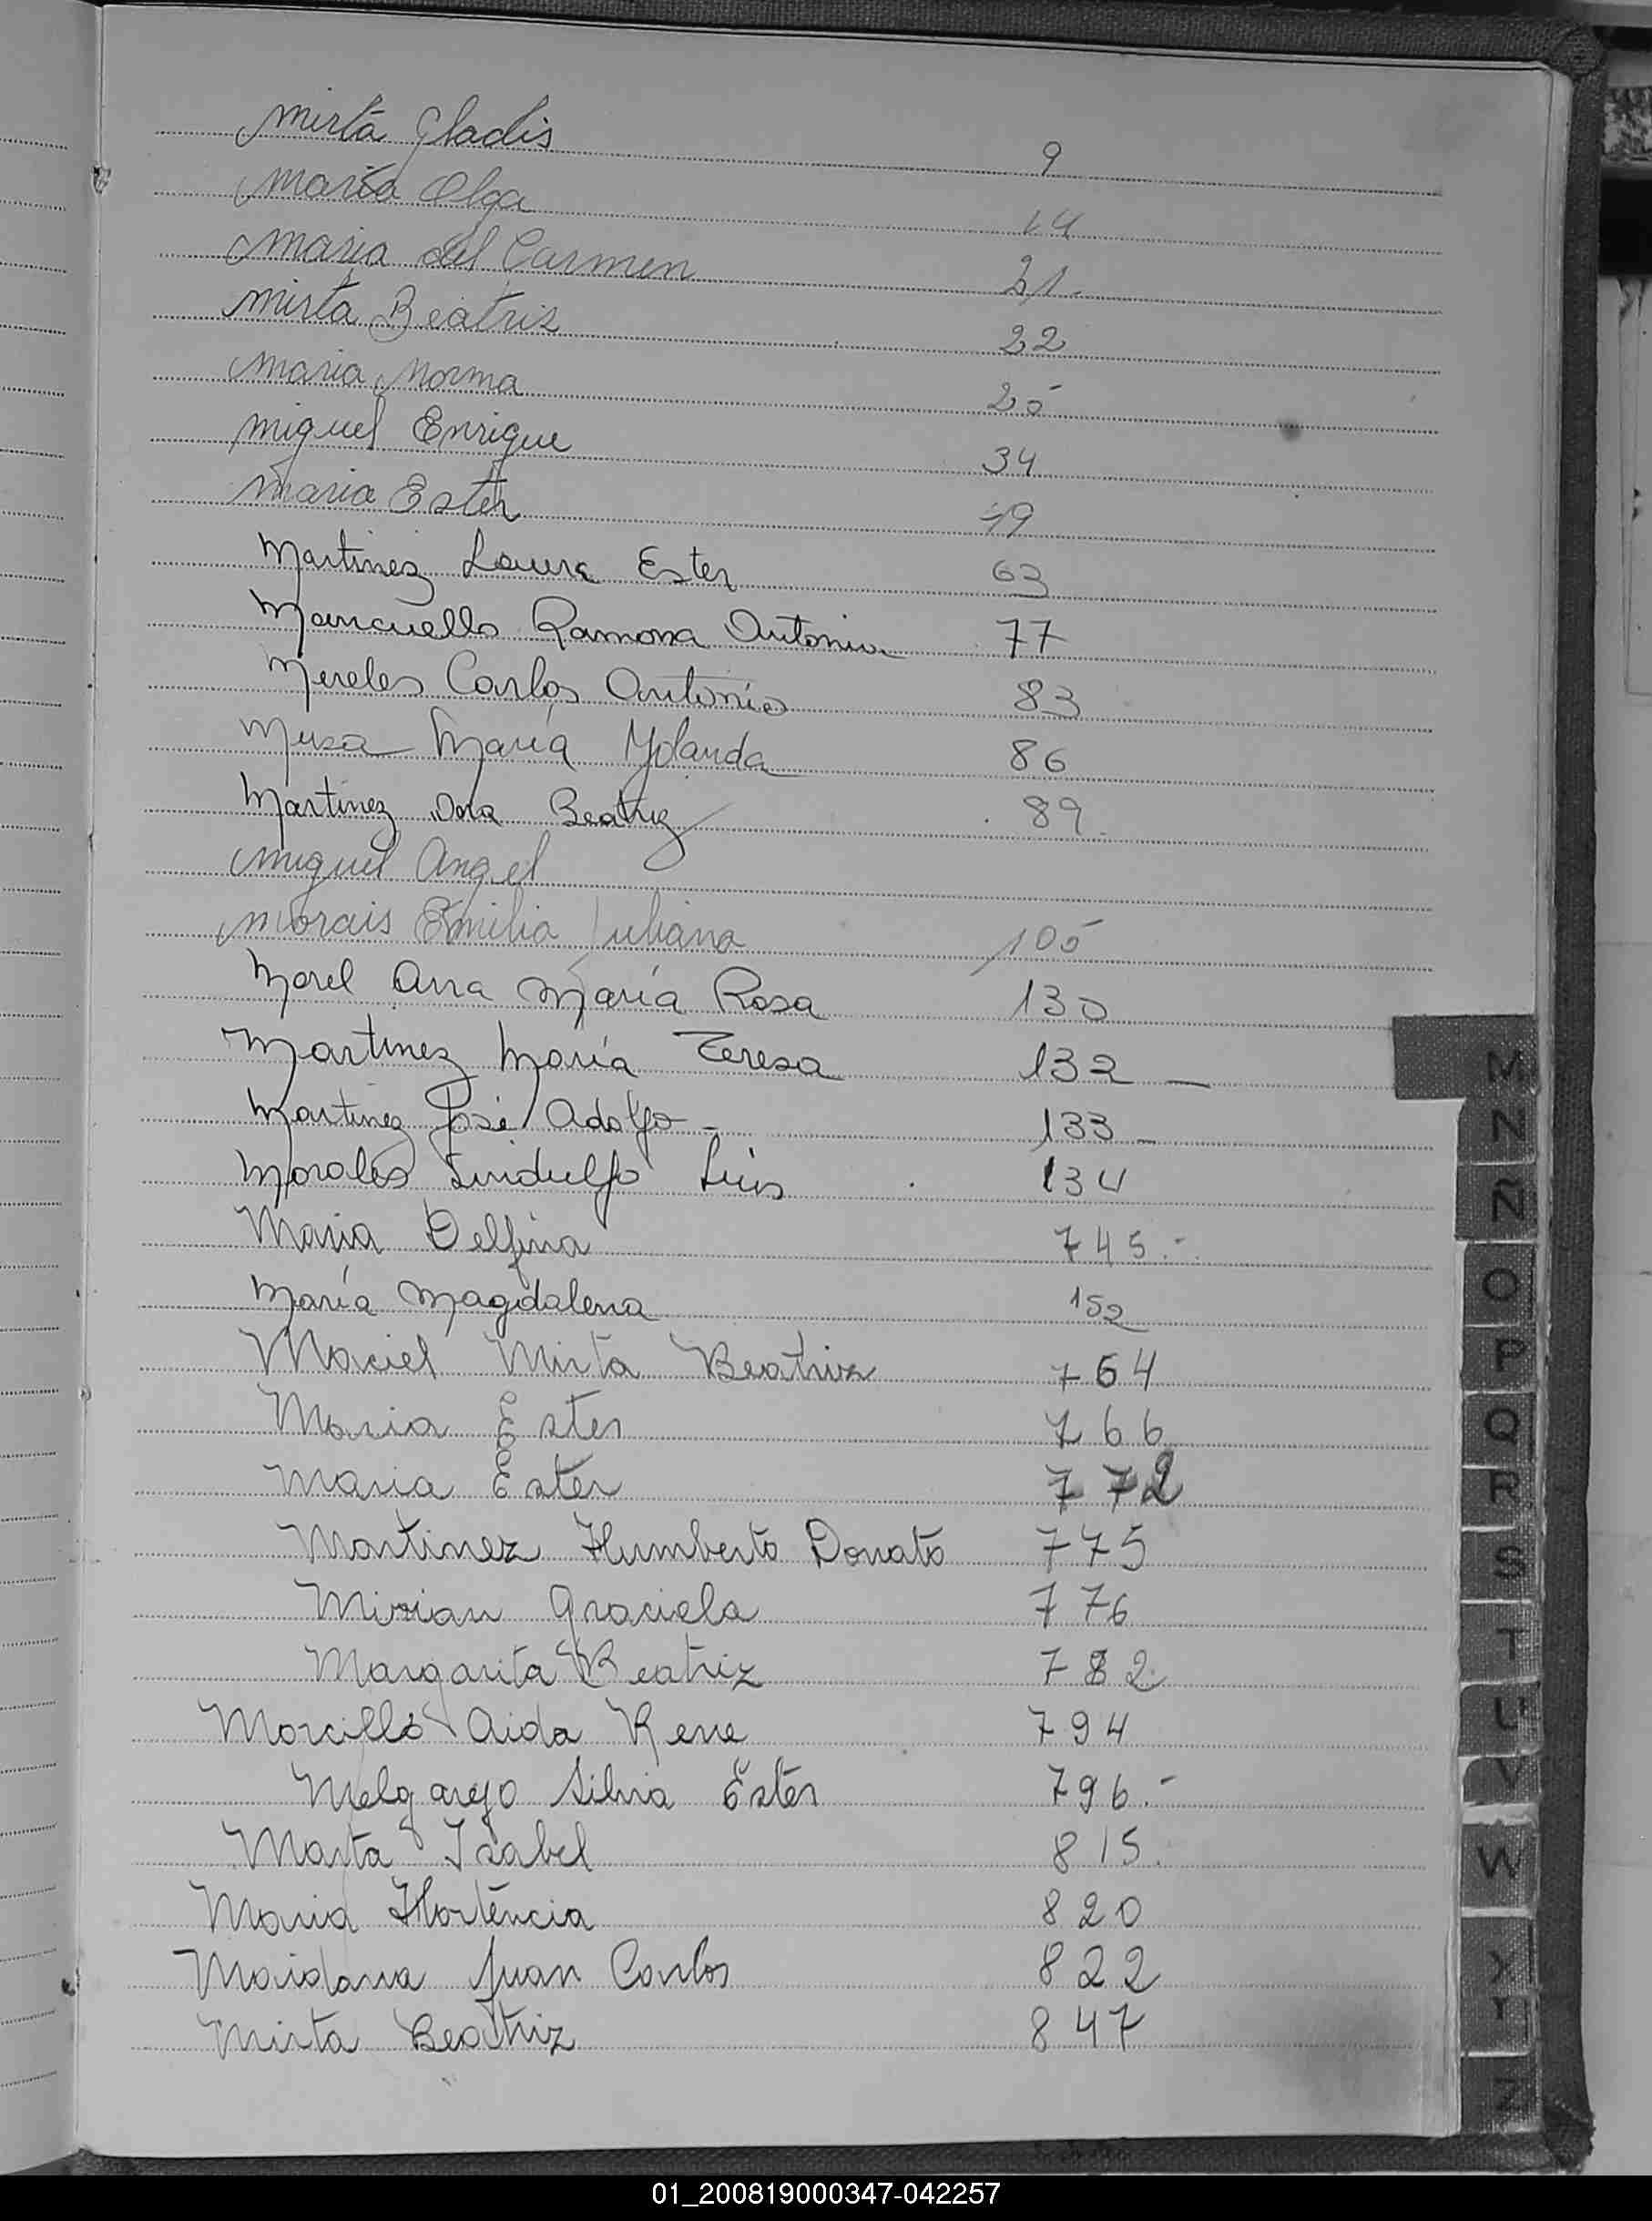 Mirta Gladis 9
Maria Olga 14
Maria del Carmen 21.
Mirta Beatris 22
Maria Norma 25
Miguel Enrique 34
Maria Ester 49
Martinez Laura Ester 63
Mancuello Ramona Antonia 77
Mereles Carlos Antonio 83
Musa María Yolanda 86
Martinez Dora Beatriz 89.
Miguel Angel
Morais Emilia Juliana 105
Morel Ana María Rosa 130
Martinez María Teresa 132 _
Martinez José Adolfo - 133 _
Morales Lindulfo Luis 134
Maria Delfina 145.-
María Magdalena 152
Maciel Mirta Beatriz 164
Maria Ester 166
Maria Ester 172
Martinez Humberto Donato 175
Mirian Graciela 176
Margarita Beatriz 182.
Morcillo Aida Rene 194
Melgarejo Silvia Ester 196.-
Marta Isabel 815.
Maria Hortencia 820
Maidana Juan Carlos 822
Mirta Beatriz 847
M
N
Ñ
O
P
Q
R
S
T
U
V
W
X
Y
Z
01_200819000347-042257